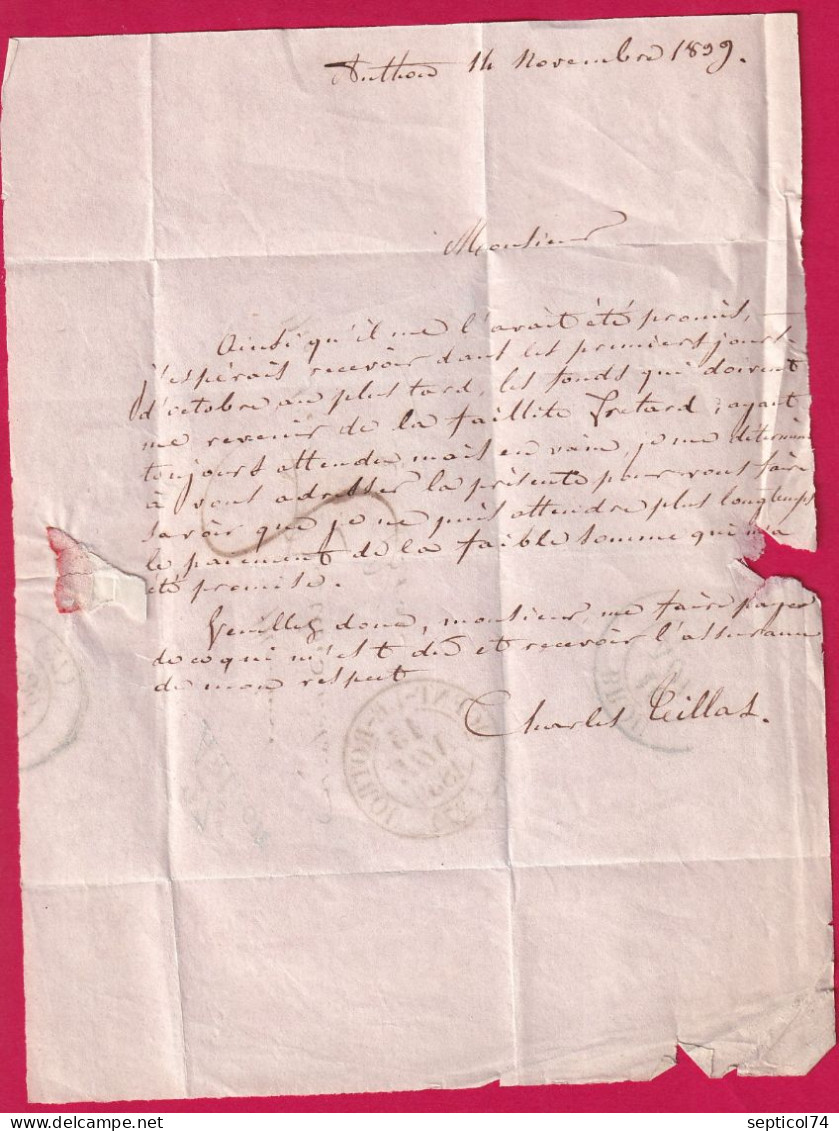 Authon 14 Novembre 1839.
Monsieur
Ainsi qu'il me l'avait été promis,
j'espérais recevoir dans les premiers jours
d'octobre au plus tard, les fonds qui doivent
me revenir de la faillite Fretard; ayant
toujours attendu mais en vain, je me détermine
à vous adresser la présente pour vous faire
savoir que je ne puis attendre plus longtemps
le paiement de la faible somme qui m'a
été promise.
Veuillez donc, monsieur, me faire payer
de ce qui m'est dû et recevoir l'assurance
de mon respect
Charles Teillas.
www.delcampe.net
septicol74